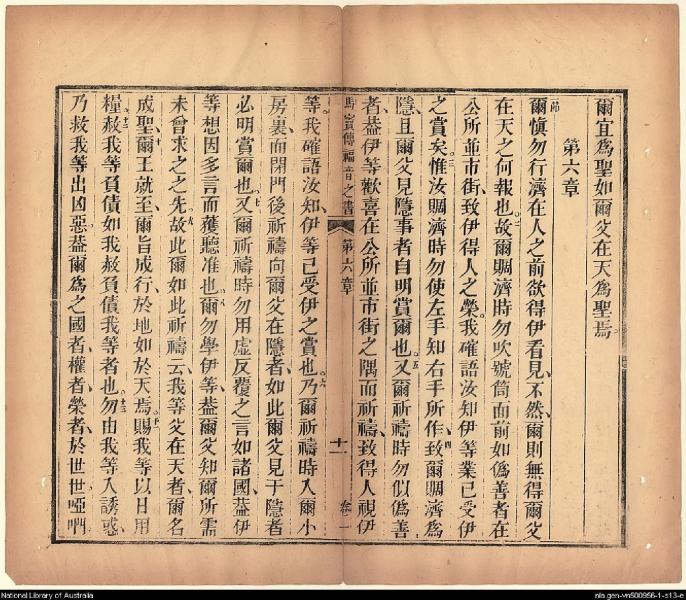 爾宜爲聖如爾父在天爲聖焉
第六章
節
爾愼勿行濟在人之前欲得伊看見、不然爾則無得爾父
在天之何報也。二故爾賙濟時勿吹號筒面前如僞善者在
公所並市街、致伊得人之榮。我確語汝知伊等業已受伊
之賞矣。三惟汝賙濟時勿使左手知右手所作、四致爾賙濟爲
隱、且爾父見隱事者自明賞爾也。五又爾祈禱時勿似僞善
者、葢伊等歡喜在公所並市街之隅而祈禱、致得人視伊
馬竇傳福音之書 第六章 十一 卷一
等。我確語汝知、伊等已受伊之賞也。六乃爾祈禱時、入爾小
房裏、而閉門後祈禱向爾父在隱者、如此爾父見于隱者
必明賞爾也。七又爾祈禱時勿用虛反覆之言如諸國、葢伊
等想因多言而獲聽准也。八爾勿學伊等、葢爾父知爾所需
未曾求之之先。九故此爾如此祈禱云、我等父在天者、爾名
成聖。十爾王就至、爾旨成行、於地如於天焉。十一賜我等以日用
糧。十二赦我等負債如我赦負債我等者也。十三勿由我等入誘惑、
乃救我等出凶惡。葢爾爲之國者、權者、榮者、於世世啞𠵽